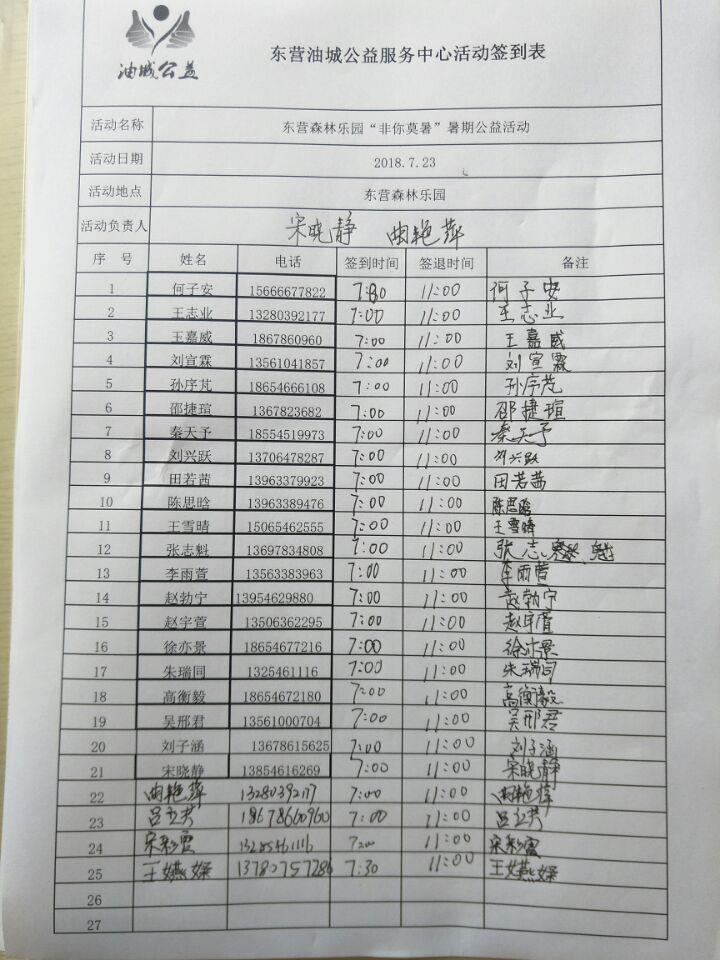 油城公益
东营油城公益服务中心活动签到表
活动名称 东营森林乐园“非你莫暑”暑期公益活动
活动日期 2018.7.23
活动地点 东营森林乐园
活动负责人 宋晓静 曲艳萍
序 号 姓名 电话 签到时间 签退时间 备注
1 何子安 15666677822 7:80 11:00 何子安
2 王志业 13280392177 7:00 11:00 王志业
3 王嘉威 1867860960 7:00 11:00 王嘉威
4 刘宣霖 13561041857 7:00 11:00 刘宣霖
5 孙序芃 18654666108 7:00 11:00 孙序芃
6 邵捷瑄 1367823682 7:00 11:00 邵捷瑄
7 秦天予 18554519973 7:00 11:00 秦天予
8 刘兴跃 13706478287 7:00 11:00 刘兴跃
9 田若茜 13963379923 7:00 11:00 田若茜
10 陈思晗 13963389476 7:00 11:00 陈思晗
11 王雪晴 15065462555 7:00 11:00 王雪晴
12 张志魁 13697834808 7:00 11:00 张志 魁
13 李雨萱 13563383963 7:00 11:00 李雨萱
14 赵勃宁 13954629880 7:00 11:00 赵勃宁
15 赵宇萱 13506362295 7:00 11:00 赵宇萱
16 徐亦景 18654677216 7:00 11:00 徐亦景
17 朱瑞同 1325461116 7:00 11:00 朱瑞同
18 高衡毅 18654672180 7:00 11:00 高衡毅
19 吴邢君 13561000704 7:00 11:00 吴邢君
20 刘子涵 13678615625 7:00 11:00 刘子涵
21 宋晓静 13854616269 7:00 11:00 宋晓静
22 曲艳萍 13280392177 7:00 11:00 曲艳萍
23 吕立芳 18678660960 7:00 11:00 吕立芳
24 宋彩霞 13285461116 7:00 11:00 宋彩霞
25 王嬿娱 13780757286 7:30 11:00 王嬿娱
26
27